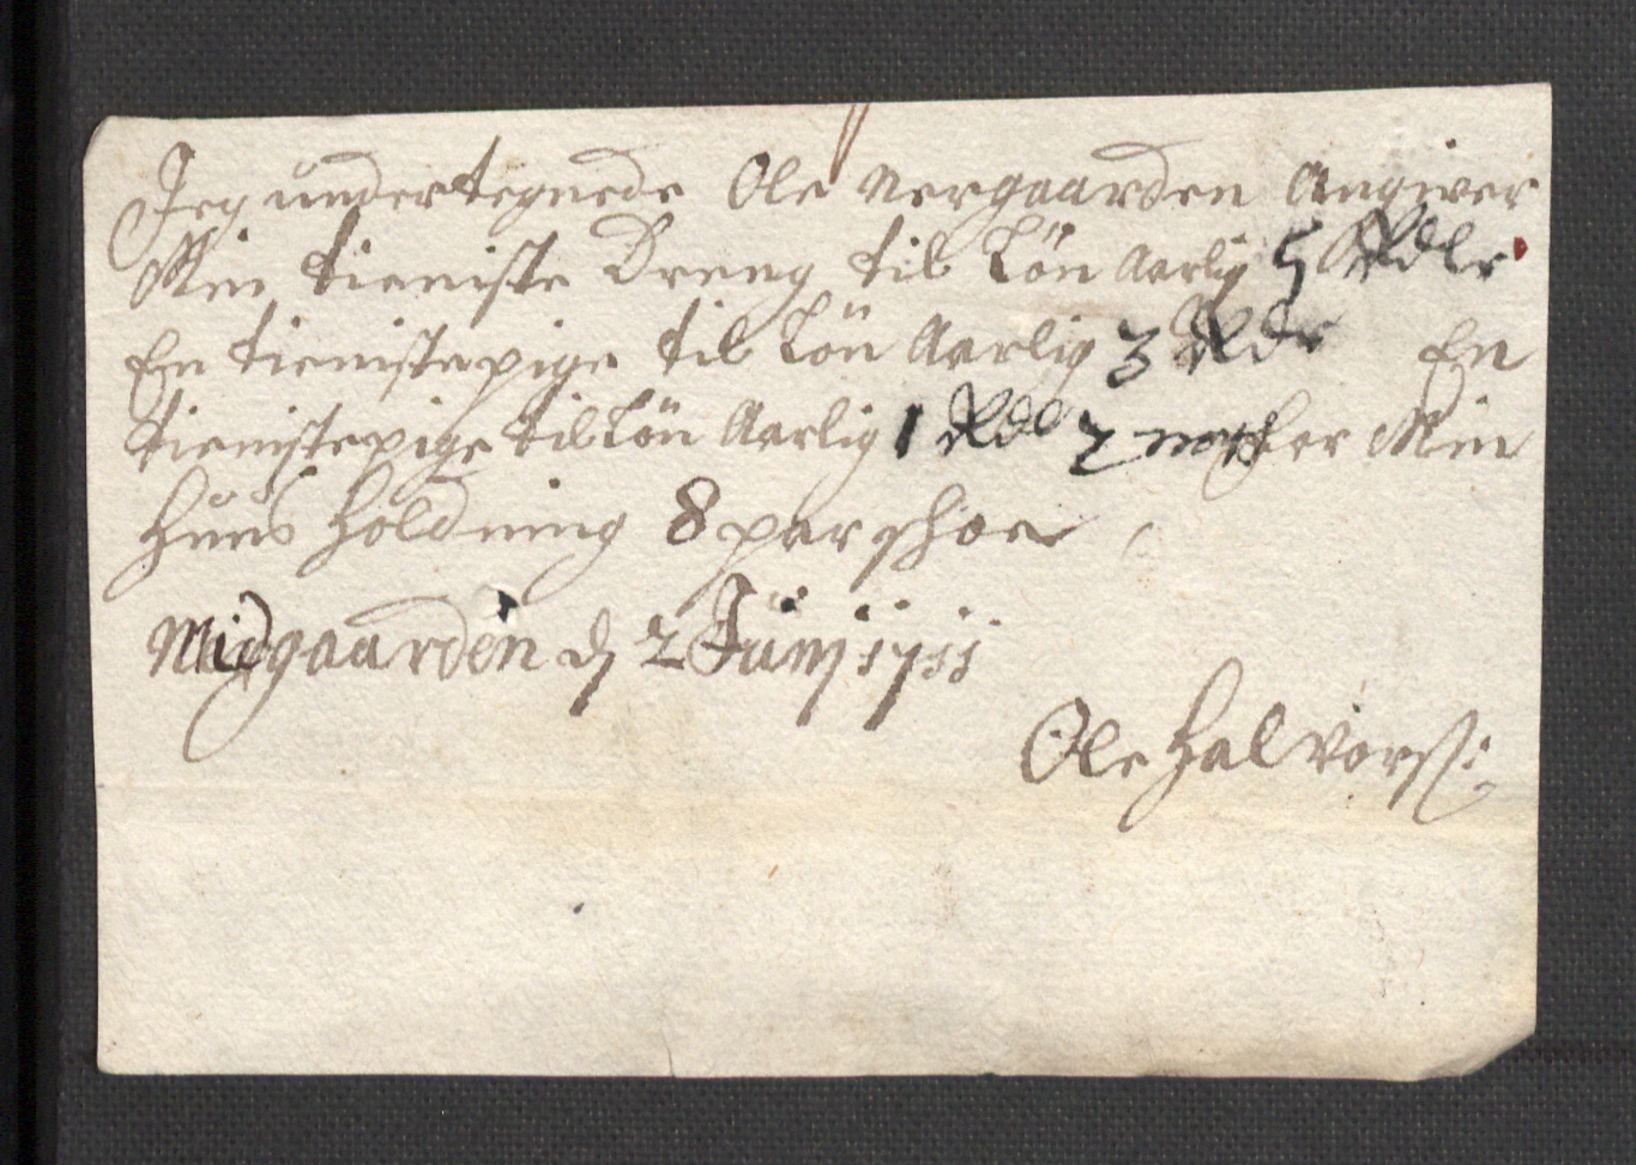 Jeg undertegnede Ole Nergaarden Angiver
Min tieniste Dreng til Lön Aarlig 5 Rdlr
En tienistepige til Lön Aarlig 3 Rdr En
tienistepige til Lön Aarlig 1 Rdl 2 for Min
Huus Holdning 8 par schoe
Midgaarden d 2 Junj 1711
Ole Halvorss: